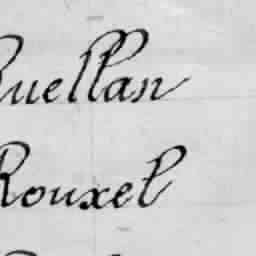 Ruellan
Rouxel